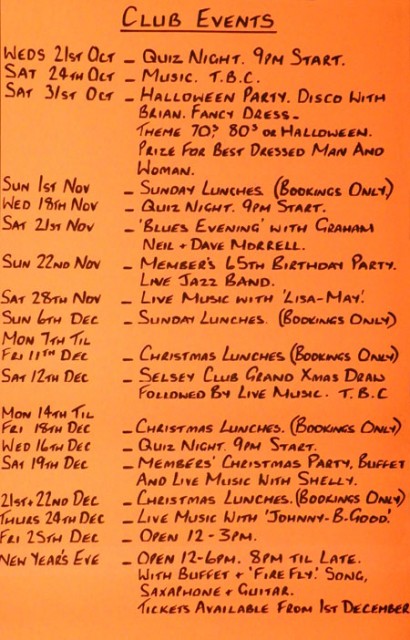 CLUB EVENTS
WEDS 21ST OCT - QUIZ NIGHT. 9PM START.
SAT 24TH OCT - MUSIC. T.B.C.
SAT 31ST OCT - HALLOWEEN PARTY. DISCO WITH
BRIAN. FANCY DRESS -
THEME 70S 80S OR HALLOWEEN.
PRIZE FOR BEST DRESSED MAN AND
WOMAN.
SUN 1ST NOV - SUNDAY LUNCHES. (BOOKINGS ONLY)
WED 18TH NOV - QUIZ NIGHT. 9PM START.
SAT 21ST NOV - 'BLUES EVENING' WITH GRAHAM
NEIL + DAVE MORRELL.
SUN 22ND NOV - MEMBER'S 65TH BIRTHDAY PARTY.
LIVE JAZZ BAND.
SAT 28TH NOV - LIVE MUSIC WITH 'LISA-MAY'.
SUN 6TH DEC - SUNDAY LUNCHES. (BOOKINGS ONLY)
MON 7TH TIL
FRI 11TH DEC - CHRISTMAS LUNCHES (BOOKINGS ONLY)
SAT 12TH DEC - SELSEY CLUB GRAND XMAS DRAW
FOLLOWED BY LIVE MUSIC. T.B.C
MON 14TH TIL
FRI 18TH DEC - CHRISTMAS LUNCHES. (BOOKINGS ONLY)
WED 16TH DEC - QUIZ NIGHT. 9PM START.
SAT 19TH DEC - MEMBERS' CHRISTMAS PARTY, BUFFET
AND LIVE MUSIC WITH SHELLY.
21ST + 22ND DEC - CHRISTMAS LUNCHES. (BOOKINGS ONLY)
THURS 24TH DEC - LIVE MUSIC WITH 'JOHNNY-B-GOOD'.
FRI 25TH DEC - OPEN 12-3PM.
NEW YEAR'S EVE - OPEN 12-6PM. 8PM TIL LATE.
WITH BUFFET + 'FIRE FLY'. SONG,
SAXAPHONE + GUITAR.
TICKETS AVAILABLE FROM 1ST DECEMBER